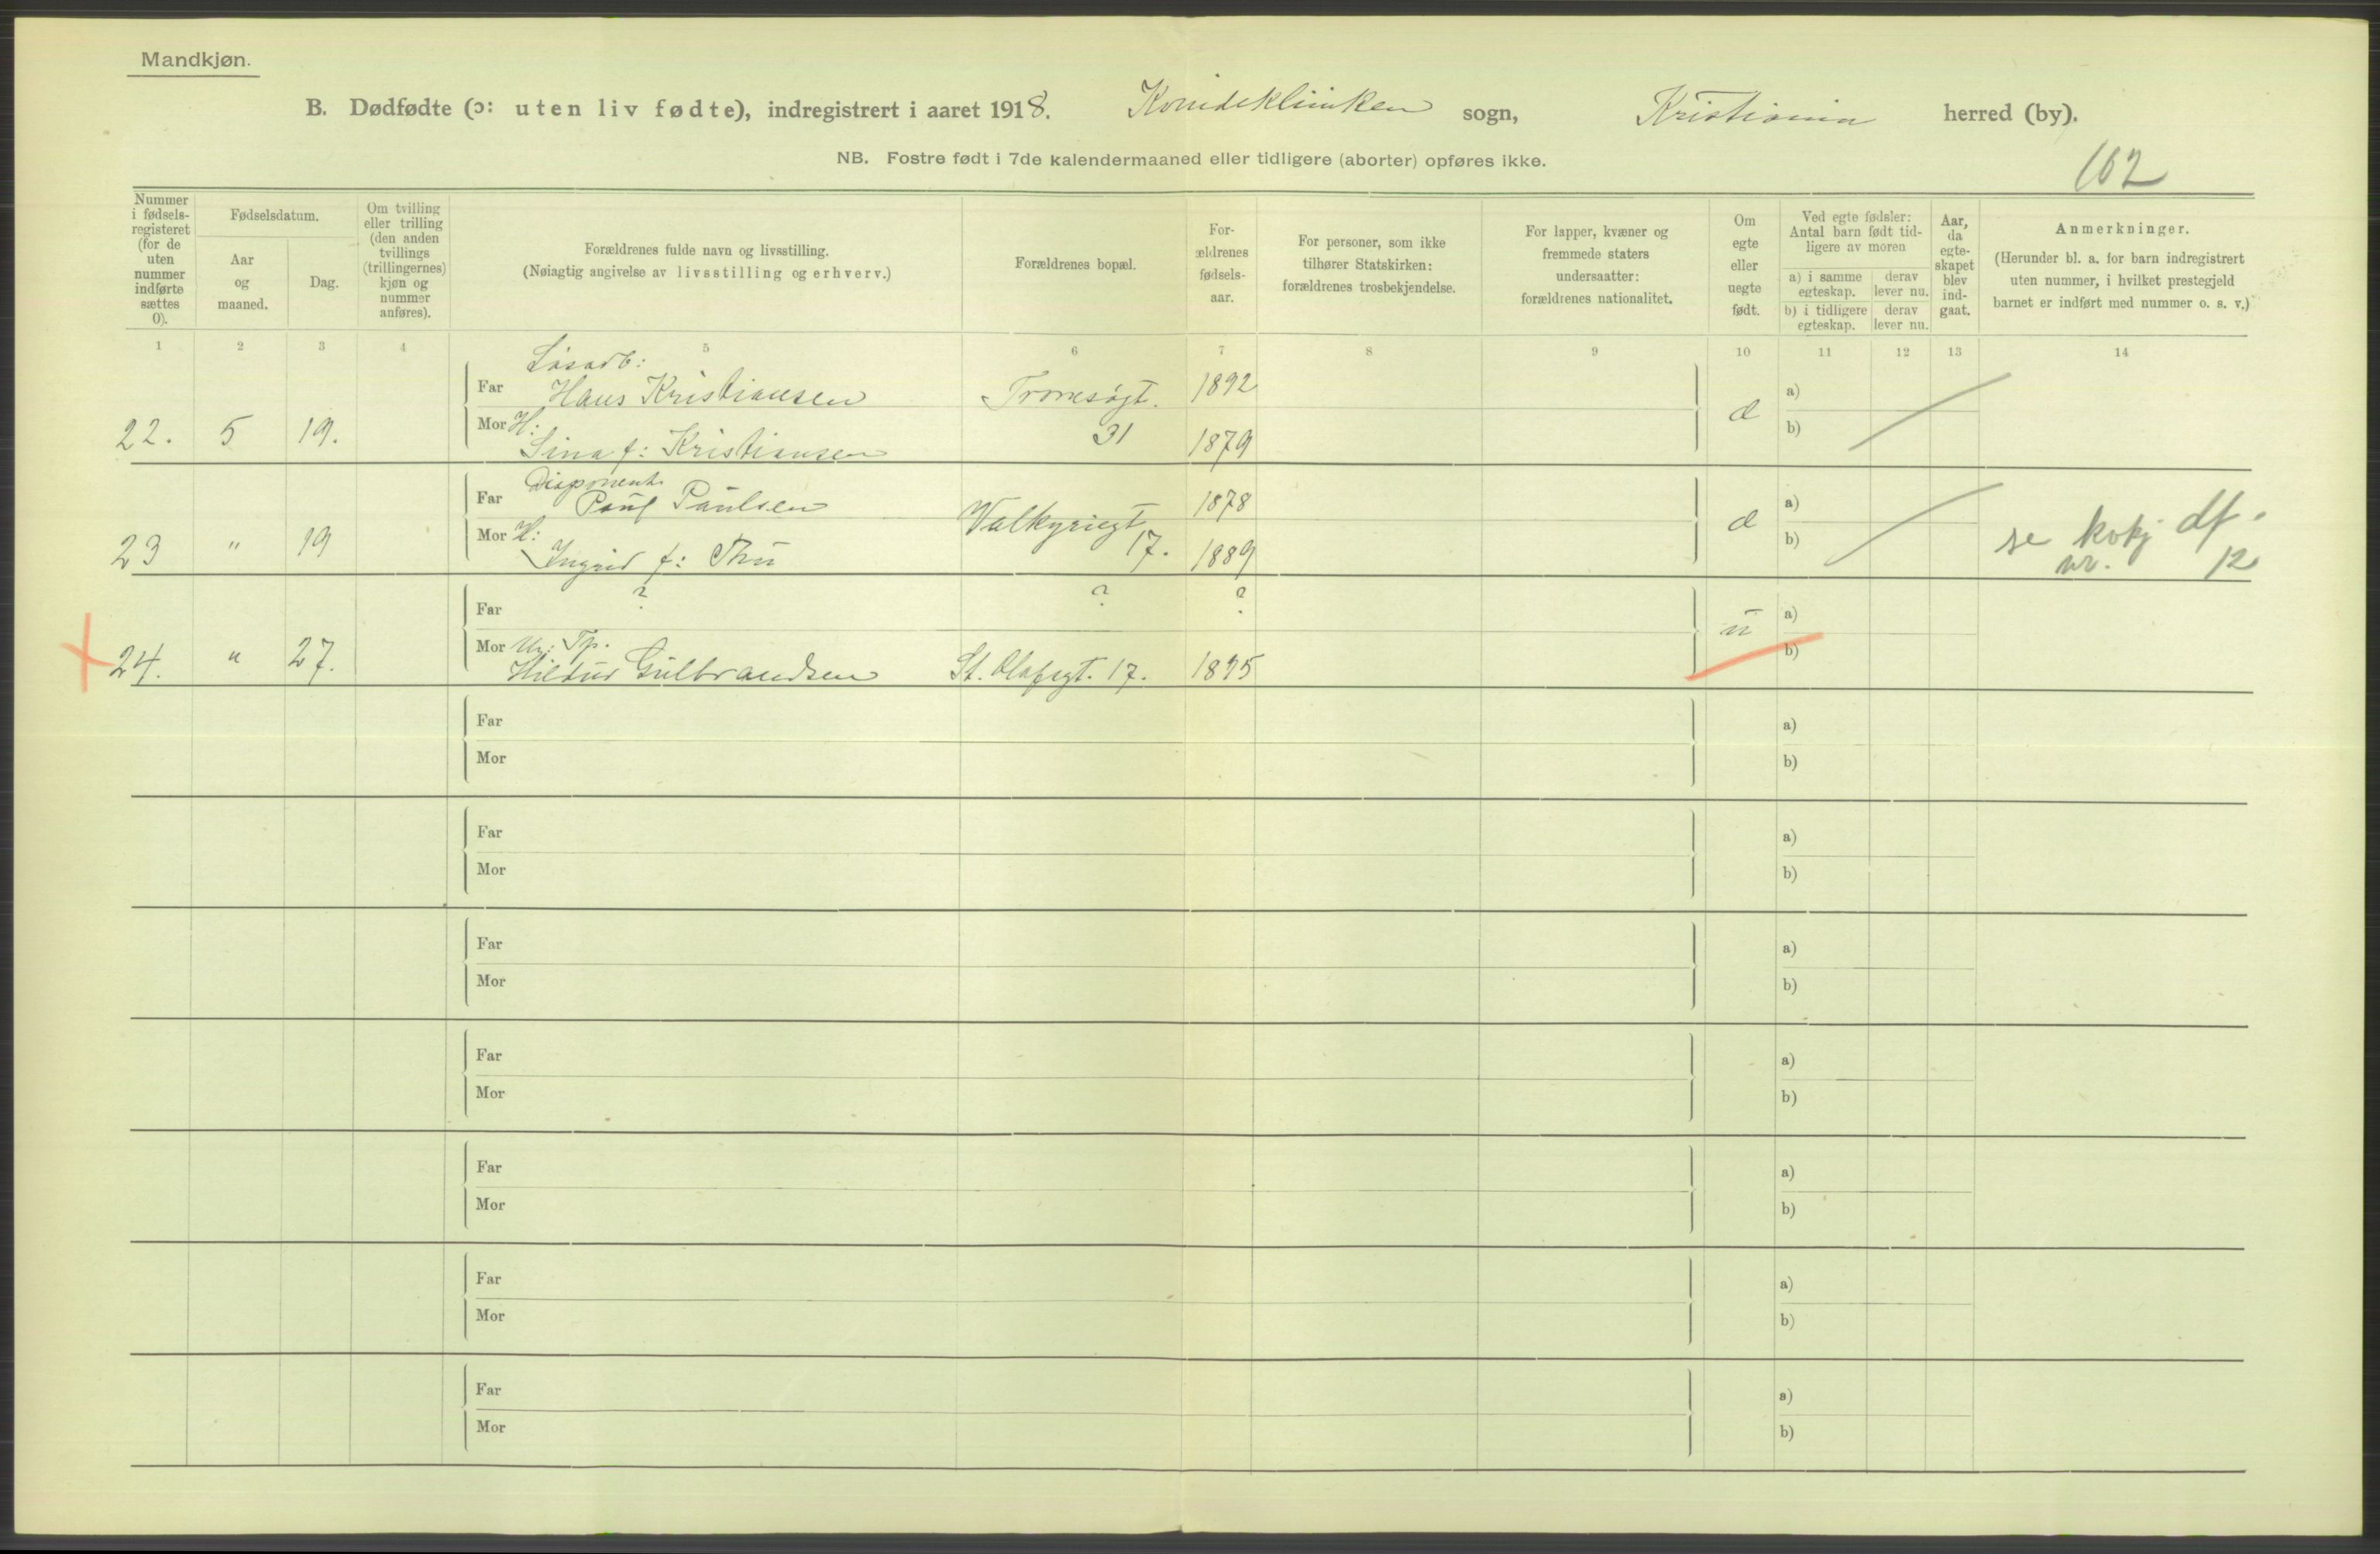 Mandkjøn.
B. Dødfødte (ɔ: uten liv fødte), indregistrert i aaret 1918. Kvindeklinikken sogn, Kristiania herred (by).
NB. Fostre født i 7de kalendermaaned eller tidligere (aborter) opføres ikke.
162
Nummer
i fødsels-
registeret
(for de
uten
nummer
indførte
sættes
0).
Fødselsdatum.
Aar
og
maaned.
Dag.
Om tvilling
eller trilling
(den anden
tvillings
(trillingernes)
kjøn og
nummer
anføres).
Forældrenes fulde navn og livsstilling.
(Nøiagtig angivelse av livsstilling og erhverv.)
Forældrenes bopæl.
For-
ældrenes
fødsels-
aar.
For personer, som ikke
tilhører Statskirken:
forældrenes trosbekjendelse.
For lapper, kvæner og
fremmede staters
undersaatter:
forældrenes nationalitet.
Om
egte
eller
uegte
født.
Ved egte fødsler:
Antal barn født tid-
ligere av moren
a) i samme
egteskap.
derav
lever nu.
b) i tidligere
egteskap.
derav
lever nu.
Aar,
da
egte-
skapet
blev
ind-
gaat.
Anmerkninger.
(Herunder bl. a. for barn indregistrert
uten nummer, i hvilket prestegjeld
barnet er indført med nummer o. s. v.)
1 2 3 4 5 6 7 8 9 10 11 12 13 14
Far Hans Kristiansen Tromsøgt. 1892 a)
22. 5 19. Mor H: 31 e b)
Sina f: Kristiansen 1879
Disponent
Far Paul Paulsen Valkyriegt 1878 a)
23 " 19 Mor H: 17. e b) se kokj df.
Ingrid f: Thu 1889 nr. 12
Far ? ? ? a)
24. " 27. Mor Ur. Tp. u b)
Hildur Gulbrandsen St. Olafsgt. 17. 1895
Far a)
Mor b)
Far a)
Mor b)
Far a)
Mor b)
Far a)
Mor b)
Far a)
Mor b)
Far a)
Mor b)
Far a)
Mor b)